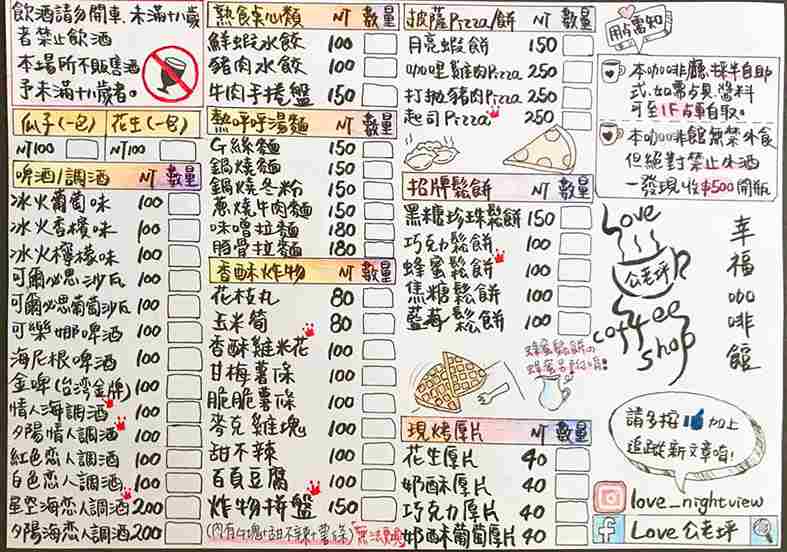 飲酒請勿開車.未滿十八歲
者禁止飲酒
本場所不販售酒
予未滿十八歲者。
瓜子(一包) 花生(一包)
NT100 NT100
啤酒/調酒 NT 數量
冰火葡萄味 100
冰火香檳味 100
冰火檸檬味 100
可爾必思沙瓦 100
可爾必思葡萄沙瓦 100
可樂娜啤酒 100
海尼根啤酒 100
金啤(台湾金牌) 100
情人海調酒 100
夕陽情人調酒 100
紅色戀人調酒 100
白色戀人調酒 100
星空海戀人調酒 200
夕陽海戀人調酒 200
熟食桌心類 NT 數量
鮮蝦水餃 100
豬肉水餃 100
牛肉手捲盤 150
熱呼呼湯麵 NT 數量
G絲麵 150
鍋燒麵 150
鍋燒冬粉 150
蔥燒牛肉麵 150
味噌拉麵 180
豚骨拉麵 180
香酥炸物 NT 數量
花枝丸 80
玉米筍 80
香酥雞米花 100
甘梅薯條 100
脆脆薯條 100
麥克雞塊 100
甜不辣 100
百頁豆腐 100
炸物拼盤 150
(內有雞塊+甜不辣+薯條)
披薩Pizza/餅 NT 數量
月亮蝦餅 150
咖哩雞肉Pizza 250
打拋豬肉Pizza 250
起司Pizza 250
招牌鬆餅 NT 數量
黑糖珍珠鬆餅 150
巧克力鬆餅 100
蜂蜜鬆餅 100
焦糖鬆餅 100
藍莓鬆餅 100
現烤厚片 NT 數量
花生厚片 40
奶酥厚片 40
巧克力厚片 40
奶酥葡萄厚片 40
用合需知
本咖啡廳.採半自助
式.如需占具醬料
可至1F占車自取。
本咖啡館無禁外食
但絕對禁止外酒
一發現.收$500開瓶
Love
公老坪
coffee
shop
幸福咖啡館
請多按 加上
追蹤新文章唷!
love_nightview
Love 公老坪